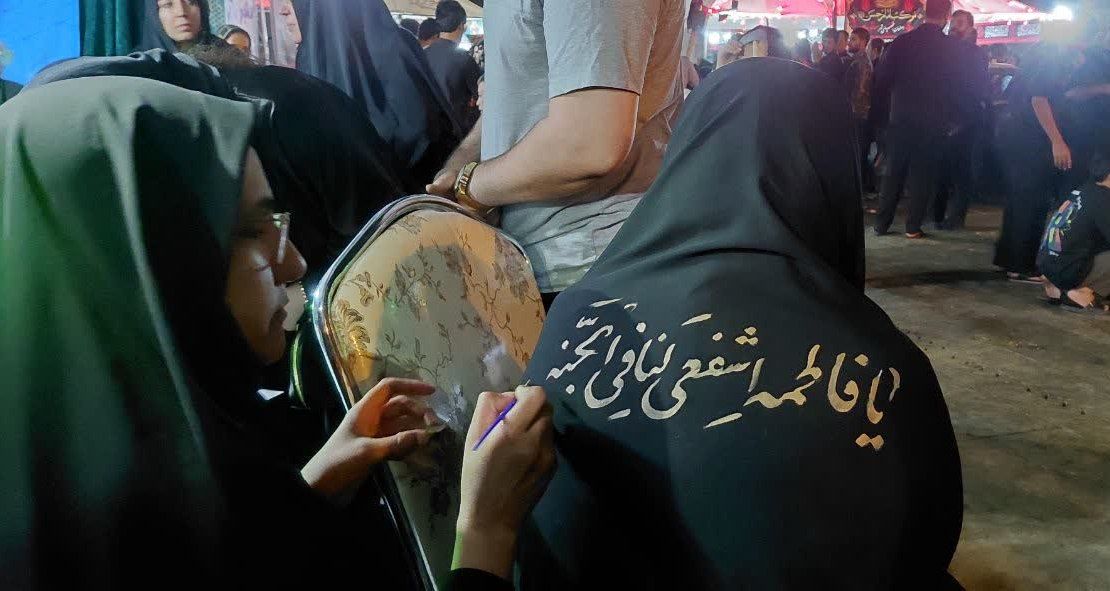 یا فاطمه اشفعی لنا فی الجنه